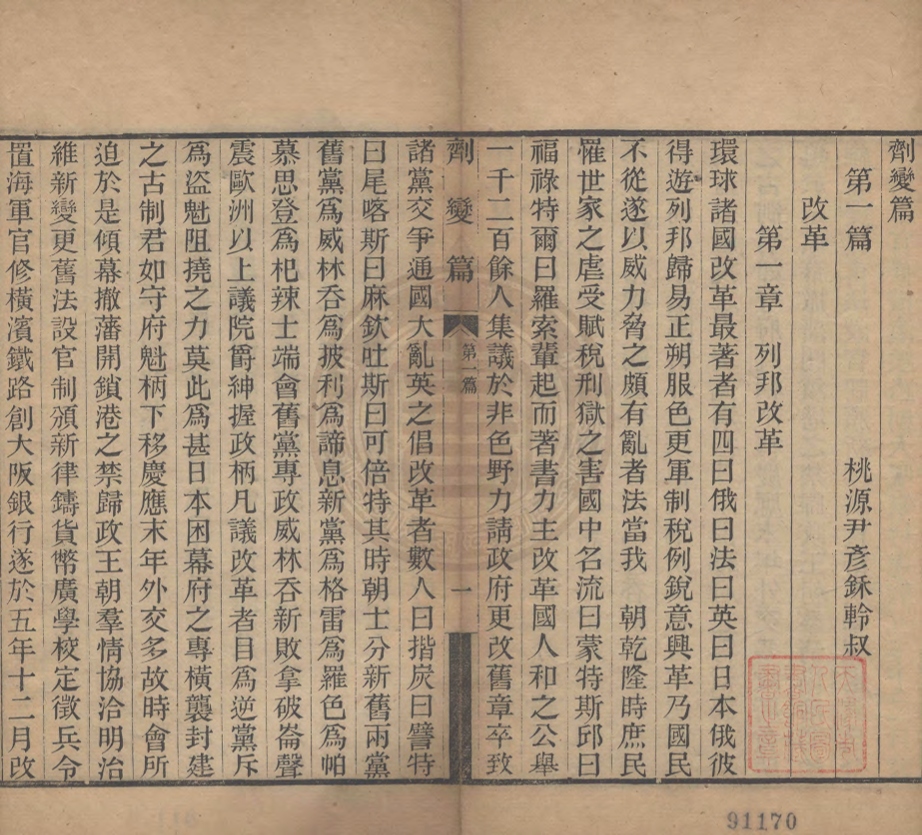 劑變篇
第一篇
桃源尹彥鉌軨叔
改革
第一章 列邦改革
環球諸國改革最著者有四曰俄曰法曰英曰日本俄彼
得遊列邦歸易正朔服色更軍制稅例銳意興革乃國民
不從遂以威力脅之頗有亂者法當我 朝乾隆時庶民
罹世家之虐受賦稅刑獄之害國中名流曰蒙特斯邱曰
福祿特爾曰羅索輩起而著書力主改革國人和之公舉
一千二百餘人集議於非色野力請政府更改舊章卒致
劑變篇 第一篇 一
諸黨交爭通國大亂英之倡改革者數人曰揩炭曰譬特
曰尾喀斯曰麻欽吐斯曰可倍特其時朝士分新舊兩黨
舊黨爲威林呑爲披利爲諦息新黨爲格雷爲羅色爲帕
慕思登爲杷辣士端會舊黨專政威林呑新敗拿破崙聲
震歐洲以上議院爵紳握政柄凡議改革者目爲逆黨斥
爲盜魁阻撓之力莫此爲甚日本困幕府之專橫襲封建
之古制君如守府魁柄下移慶應末年外交多故時會所
迫於是傾幕撤藩開鎖港之禁歸政王朝羣情協洽明治
維新變更舊法設官制頒新律鑄貨幣廣學校定徵兵令
置海軍官修橫濱鐵路創大阪銀行遂於五年十二月改
91170